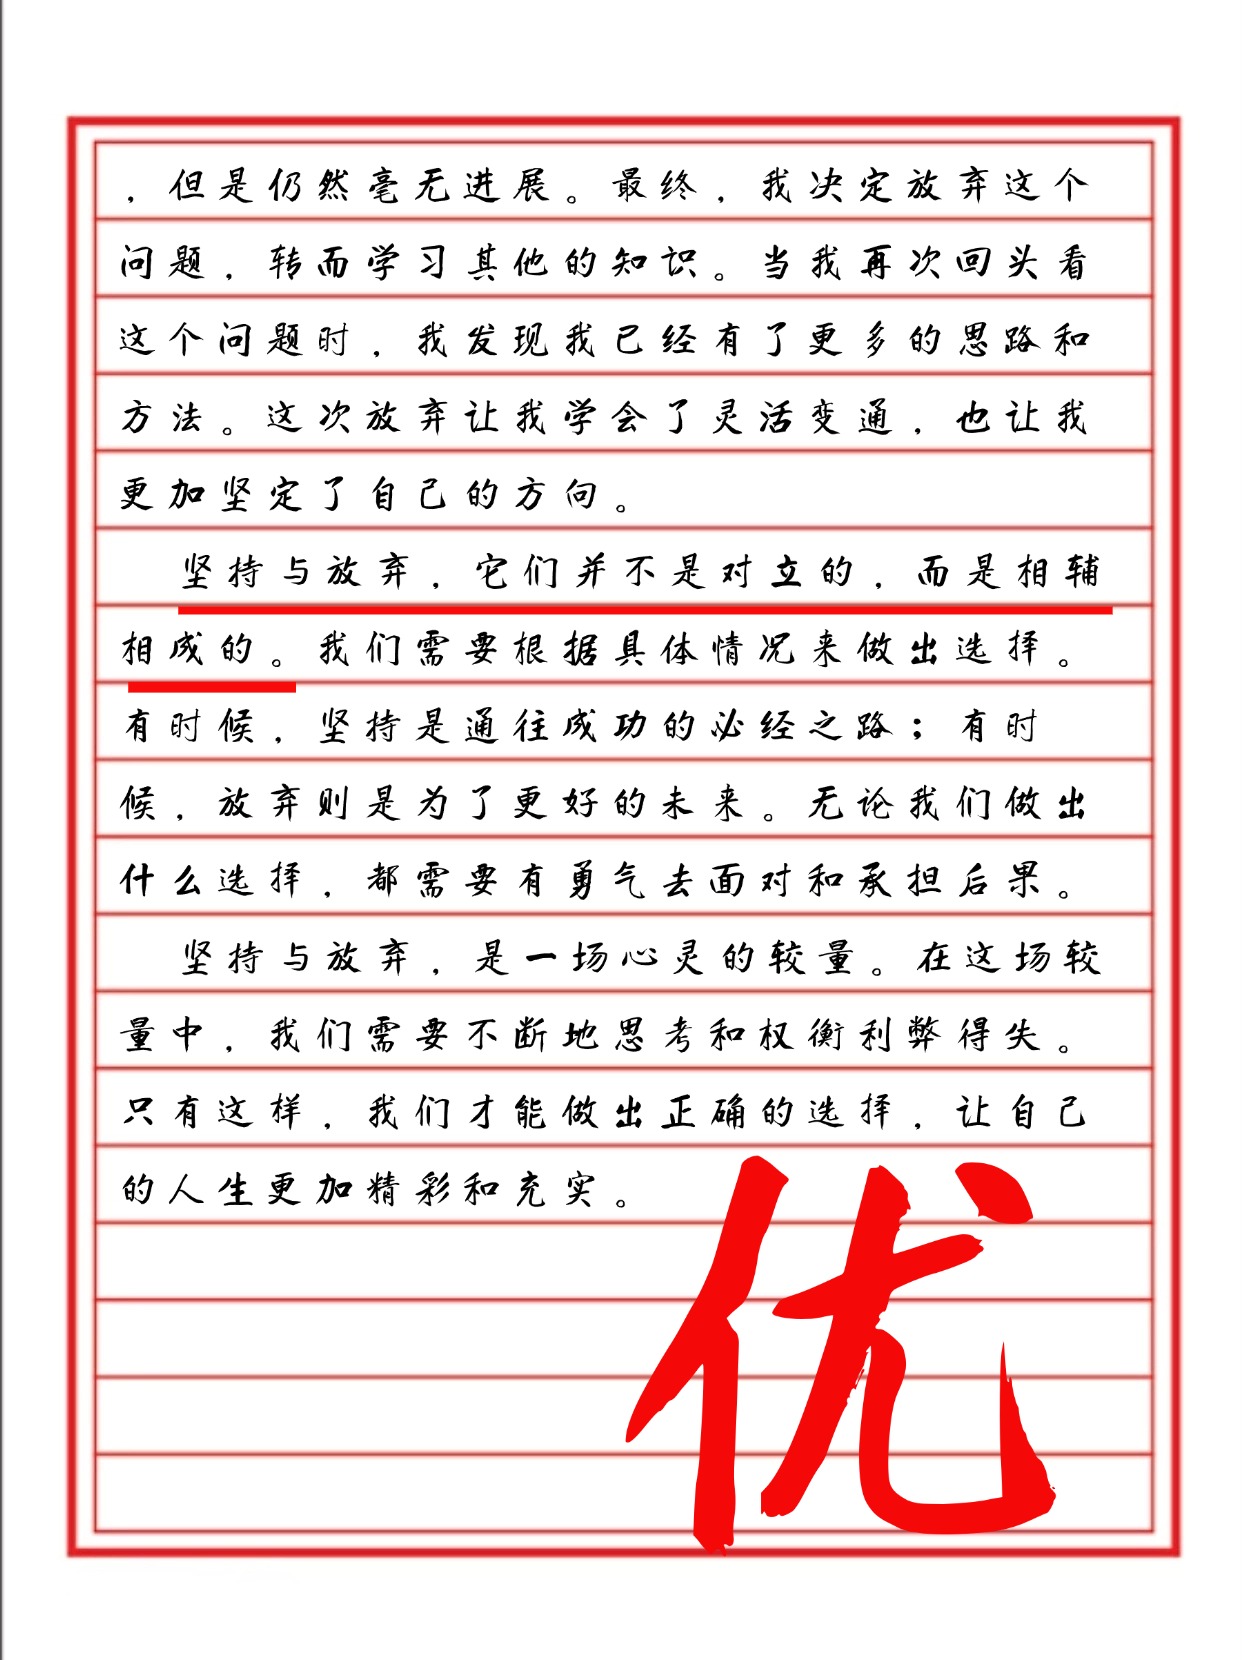 ，但是仍然毫无进展。最终，我决定放弃这个
问题，转而学习其他的知识。当我再次回头看
这个问题时，我发现我已经有了更多的思路和
方法。这次放弃让我学会了灵活变通，也让我
更加坚定了自己的方向。
坚持与放弃，它们并不是对立的，而是相辅
相成的。我们需要根据具体情况来做出选择。
有时候，坚持是通往成功的必经之路；有时
候，放弃则是为了更好的未来。无论我们做出
什么选择，都需要有勇气去面对和承担后果。
坚持与放弃，是一场心灵的较量。在这场较
量中，我们需要不断地思考和权衡利弊得失。
只有这样，我们才能做出正确的选择，让自己
的人生更加精彩和充实。
优